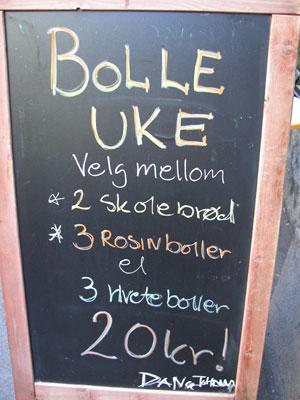 BOLLE
UKE
Velg mellom
* 2 Skolebrød
* 3 ROSINboller
el
3 Hveteboller
20kr!
DAN &